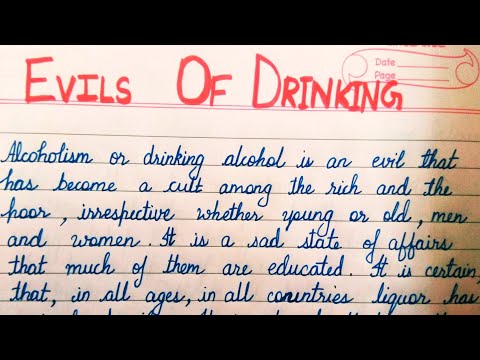 Date
Page
EVILS OF DRINKING
Alcoholism or drinking alcohol is an evil that
has become a cult among the rich and the
poor, irrespective whether young or old, men
and women. It is a sad state of affairs
that much of them are educated. It is certain,
that, in all ages, in all countries liquor has